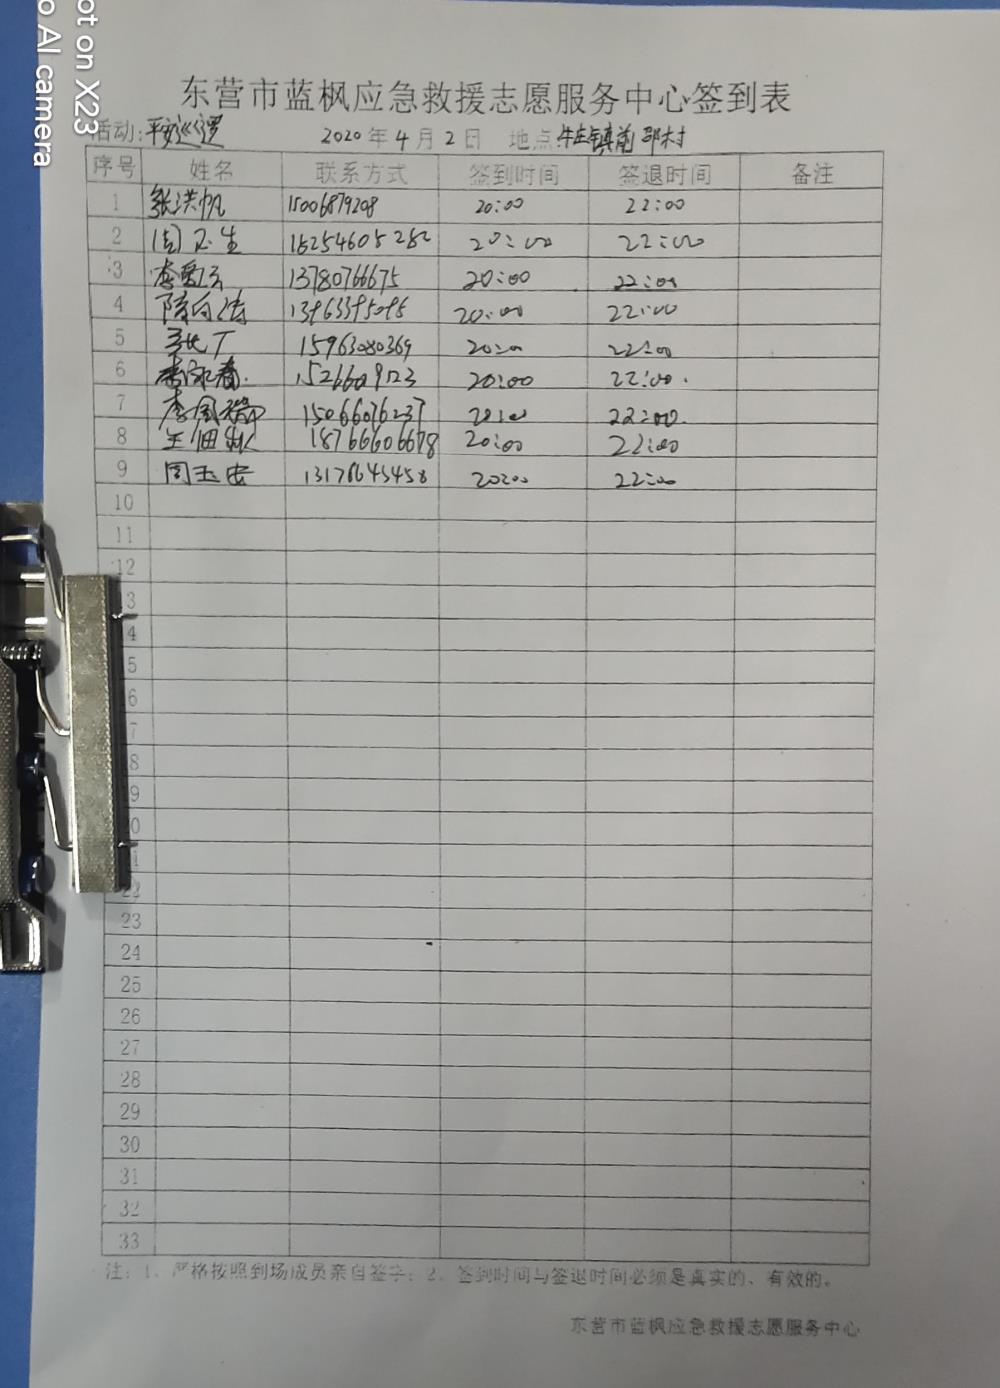 ot on X23
o AI camera
东营市蓝枫应急救援志愿服务中心签到表
活动:平安巡逻 2020年4月2日 地点:牛庄镇前邵村
序号 姓名 联系方式 签到时间 签退时间 备注
1 张洪帆 15006879208 20:00 22:00
2 周卫生 18254605282 20:00 22:00
3 李爱云 13780766675 20:00 22:00
4 隋向涛 20:00 22:00
5 15963080369 20:00 22:00
6 李永春 20:00 22:00.
7 李凤瑞 15066076237 20:00 22:00.
8 18766606678 20:00 22:00
9 周玉忠 13176643458 20:00 22:00
10
11
12
3
4
5
6
7
8
9
0
1
22
23
24
25
26
27
28
29
30
31
32
33
注:1、严格按照到场成员亲自签字;2、签到时间与签退时间必须是真实的、有效的。
东营市蓝枫应急救援志愿服务中心